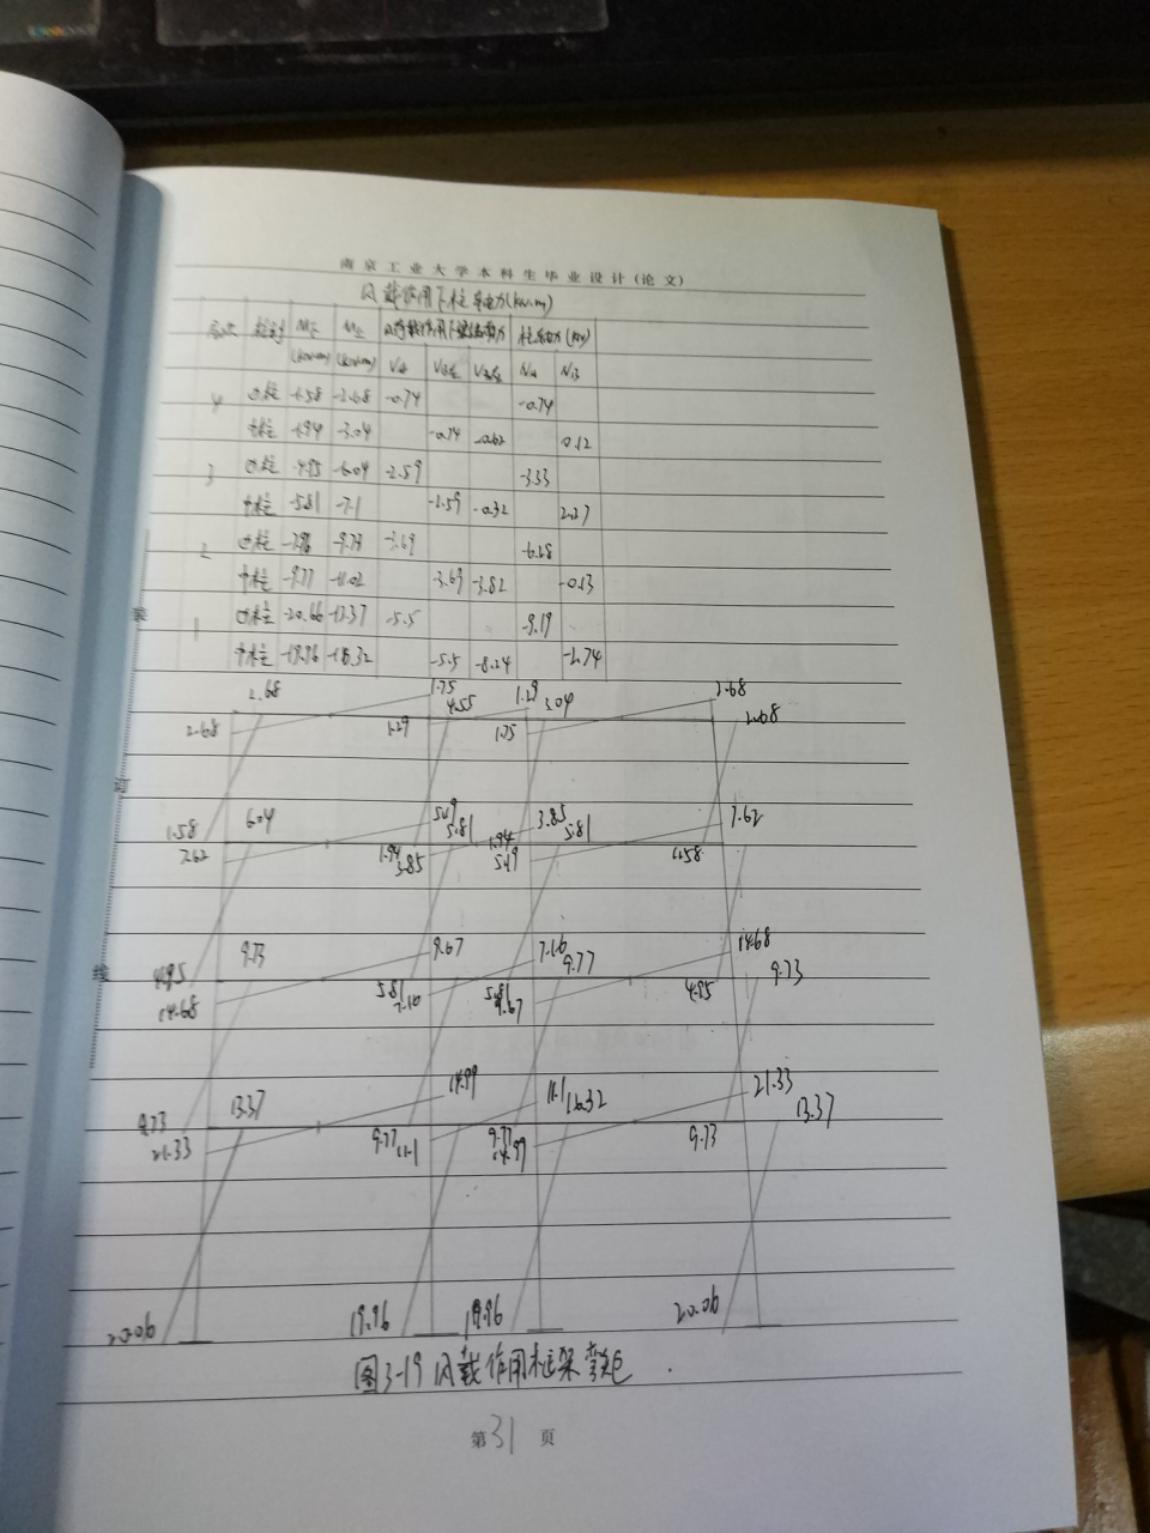 南京工业大学本科生毕业设计(论文)
风载作用下柱轴力(kN·m)
层次 柱别 M下 M上 风荷载作用下梁端剪力 柱轴力(kN)
(kN·m) (kN·m) VA VB左 VB右 NA NB
4 边柱 -1.58 -2.68 -0.74 -0.74
中柱 -1.94 -3.04 -0.74 -0.62 0.12
3 边柱 -4.95 -6.04 -2.59 -3.33
中柱 -5.81 -7.1 -2.59 -0.32 2.27
2 边柱 -9.73 -3.69
中柱 -9.77 -11.02 -3.69 -3.82 -0.13
1 边柱 -20.66 -13.37 -5.5 -9.19
中柱 -19.96 -16.32 -5.5 -8.24 -2.74
2.68 1.75 1.29 2.68
4.55 3.04
2.68 1.29 1.75 2.68
6.04 5.49 3.85 7.62
1.58 5.81 1.94 5.81
7.62 1.94 3.85 5.49 1.58
9.73 9.67 7.16 14.68
9.77 9.73
4.95 5.81 5.81 4.95
14.68 7.16 9.67
13.37 14.99 11.1 16.32 21.33
13.37
9.73 9.77 9.77 9.73
21.33 11.1 14.99
20.06 19.96 19.96 20.06
图3-19 风载作用框架弯矩
第31页